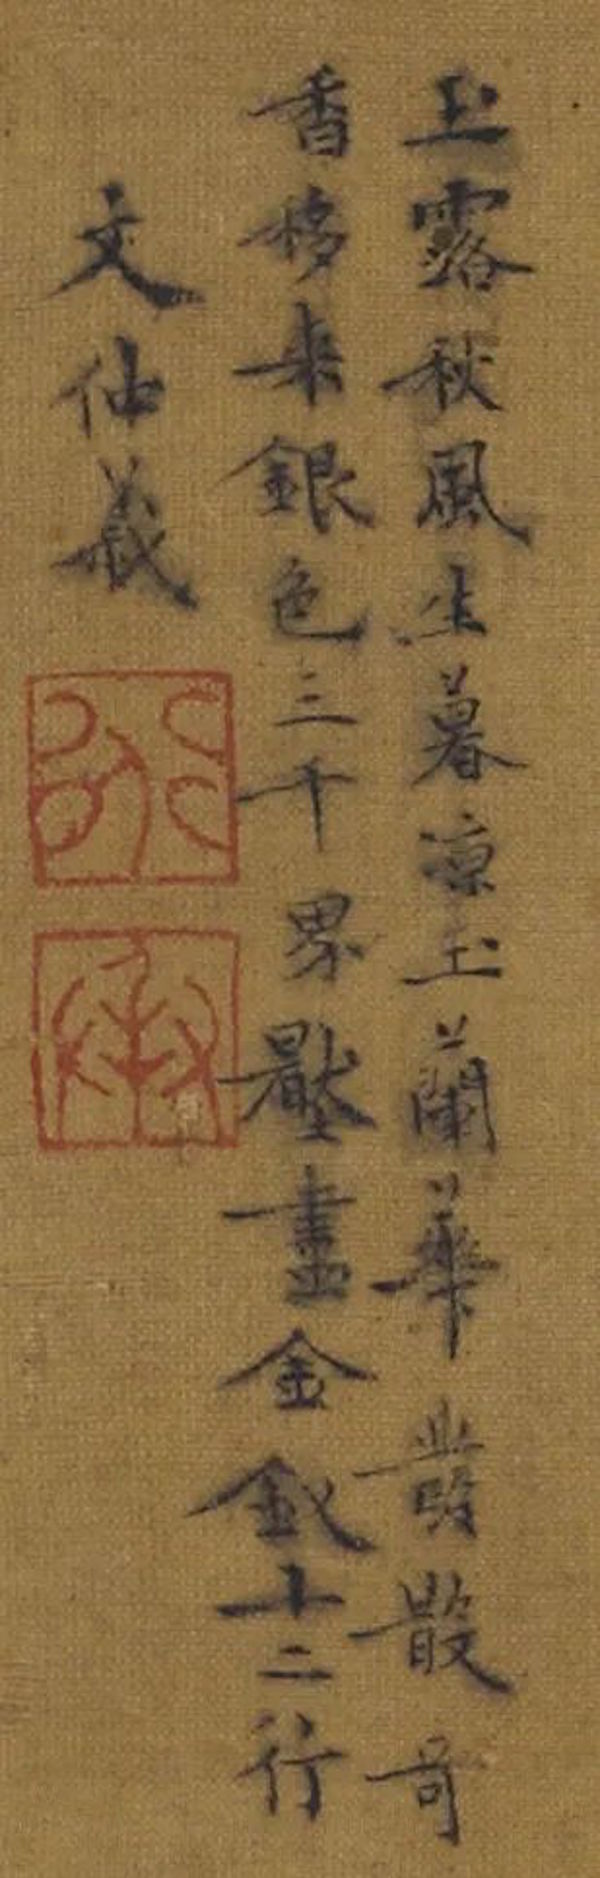 玉露秋風生暮涼玉蘭華發散奇
香移來銀色三千界壓盡金釵十二行
文仲義